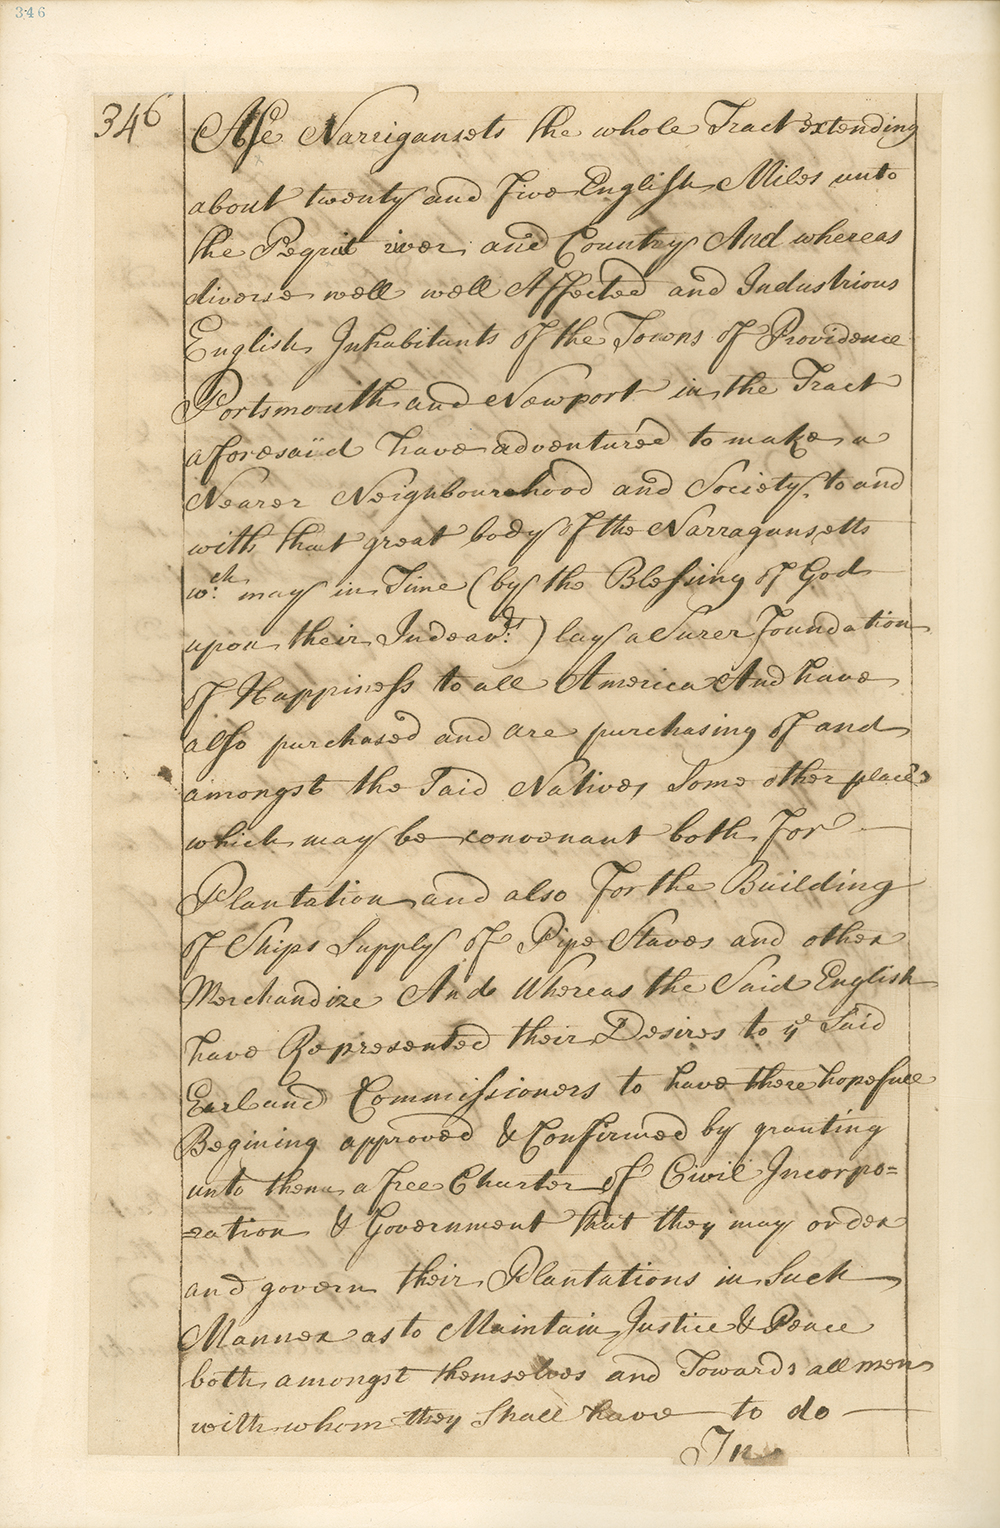 346
346
Ale Narrigansets the whole Tract extending
about twenty and five English Miles unto
the Pequit river and Country And whereas
diverse well well Affected and Industrious
English Inhabitants of the Towns of Providence
Portsmouth and Newport in the Tract
aforesaid have adventured to make a
Nearer Neighbourhood and Society to and
with that great body of the Narragansetts
wch. may in Time (by the Blessing of God
upon their Indeavrs.) lay a Surer foundation
of Happiness to all America And have
also purchased and are purchasing of and
amongst the Said Natives Some other places
which may be convenant both For
Plantation and also For the Building
of Ships Supply of Pipe Staves and other
Merchandize And Whereas the Said English
have Represented their Desires to ye Said
Earl and Commissioners to have there hopefull
Begining approved & Confirmed by granting
unto them a free Charter of Civil Incorpo=
=ration & Government that they may order
and govern their Plantations in Such
Manner as to Maintain Justice & Peace
both amongst themselves and Towards all men
with whom they Shall have to do
In